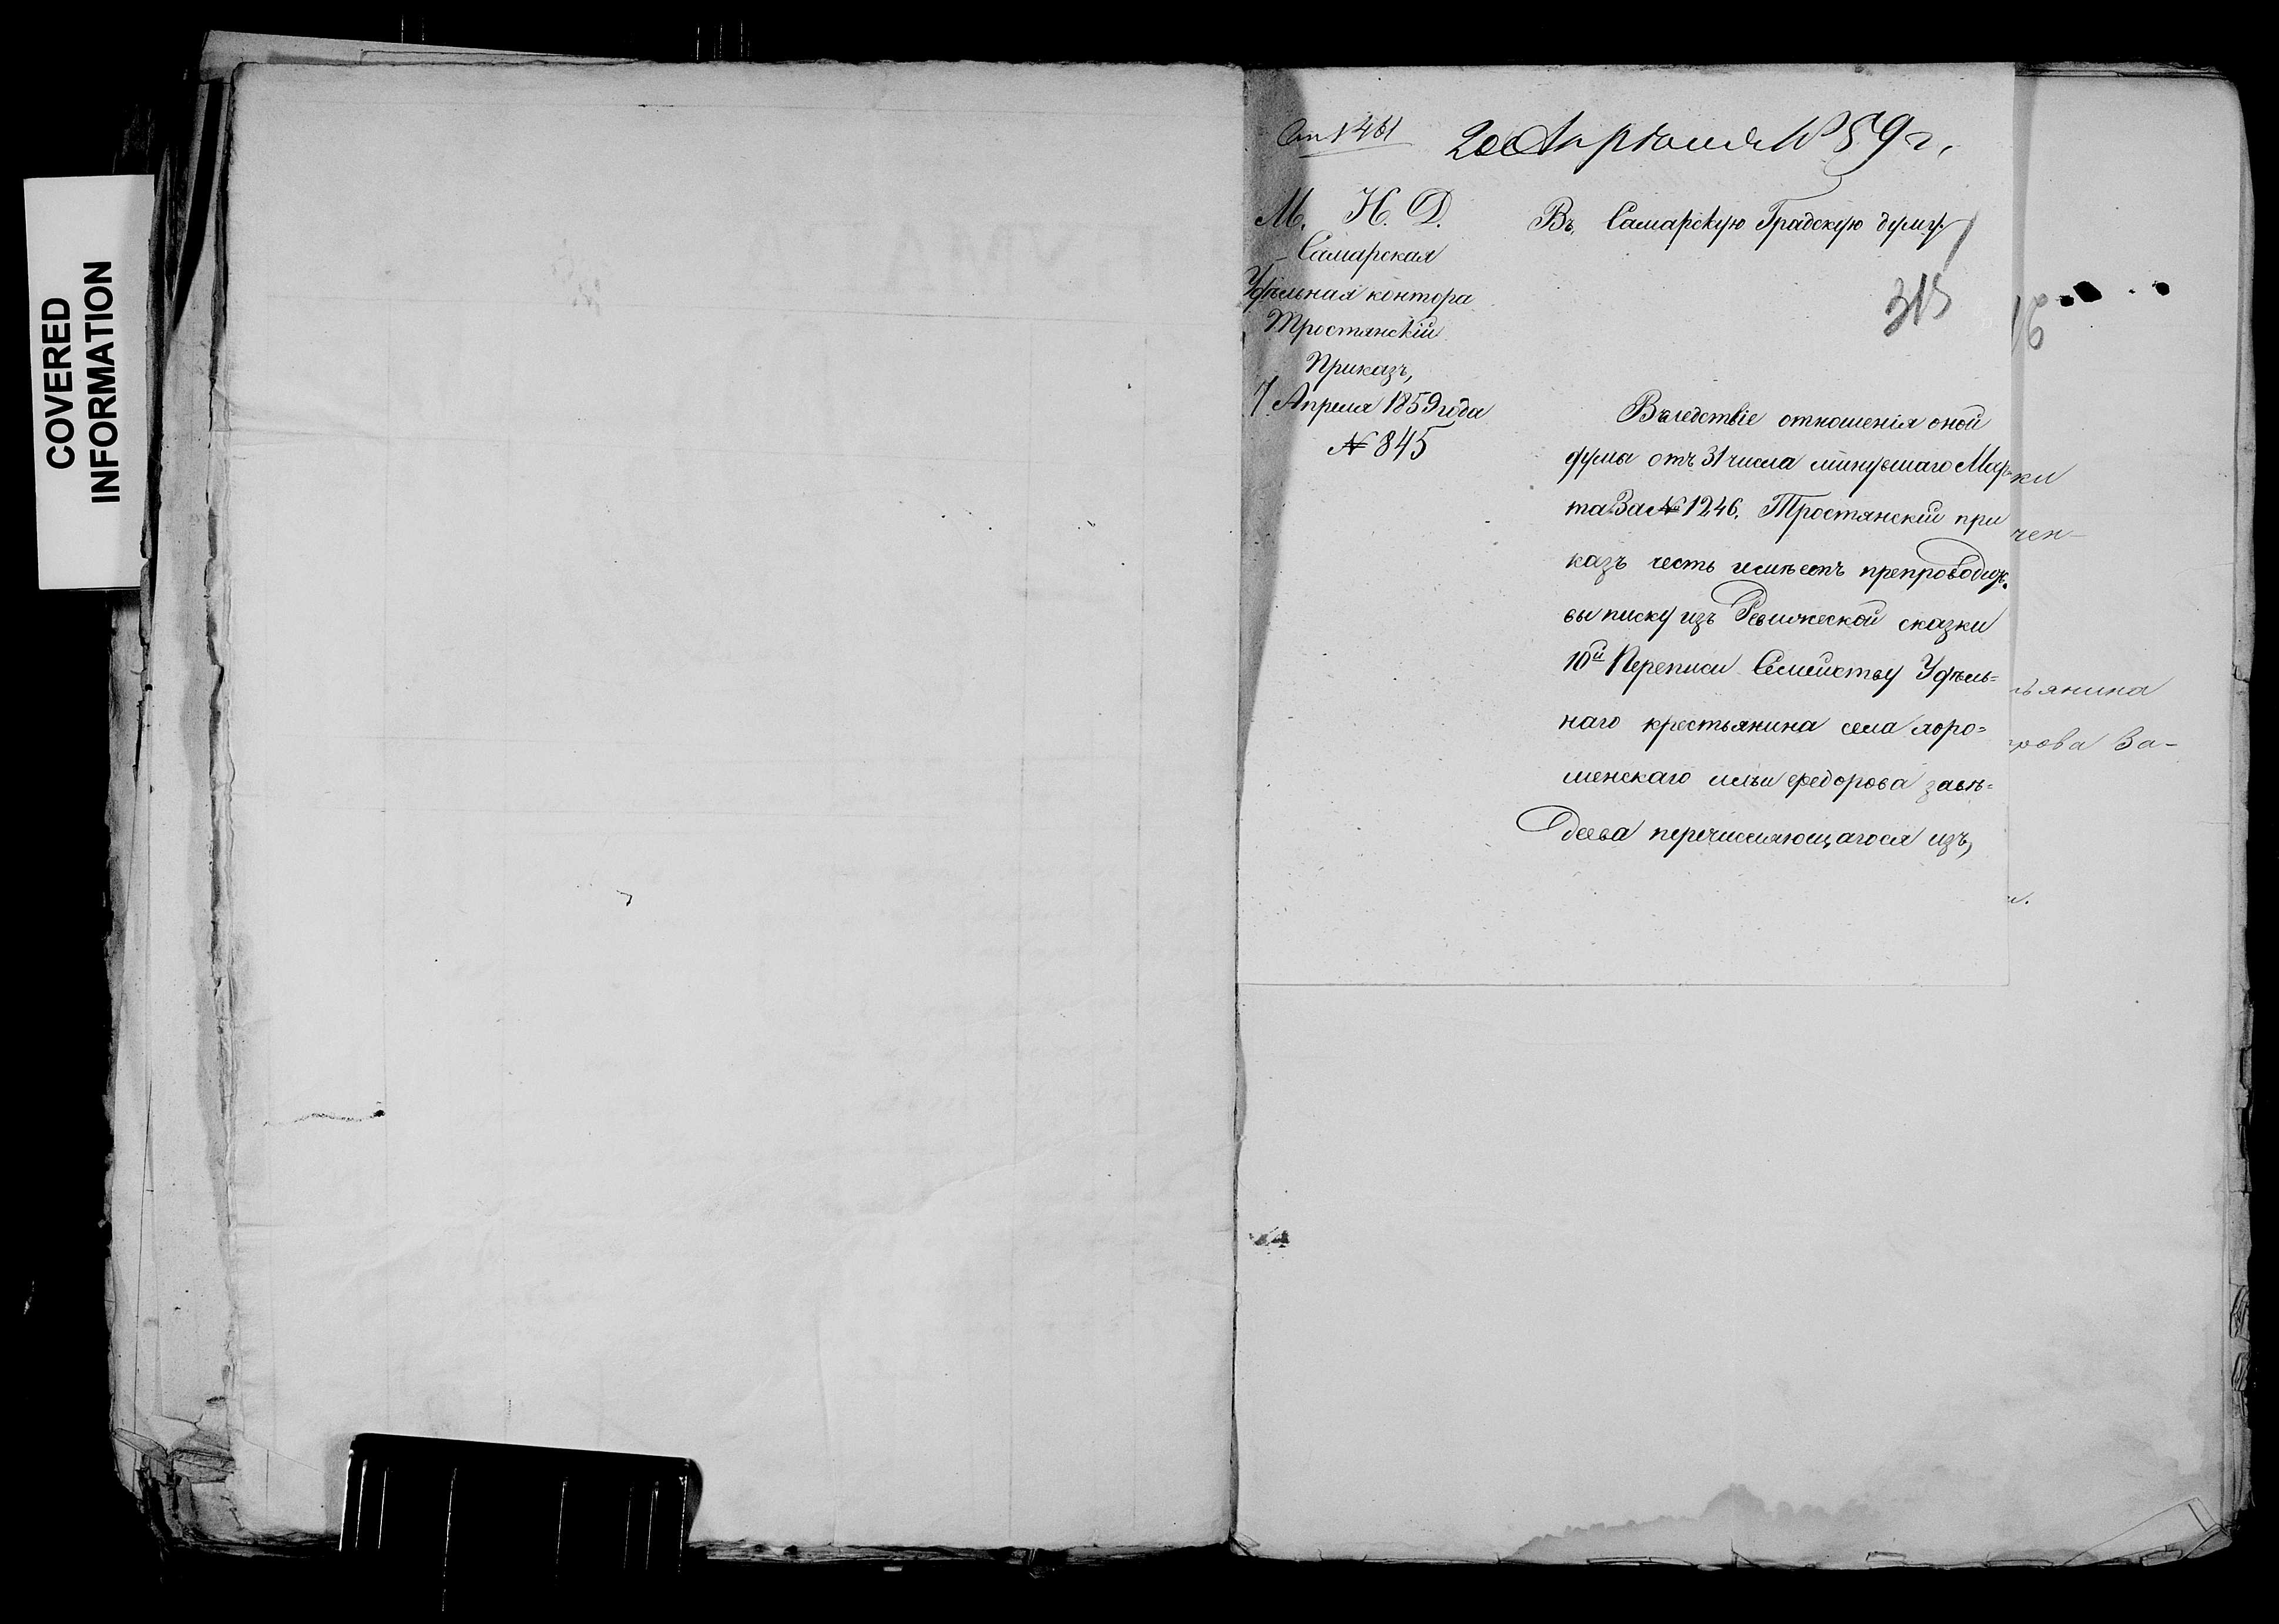 COVERED
INFORMATION
20 Апреля 1859 г.
М. И. Д.
Самарская
Удѣльная контора
Тростянскій
Приказъ,
7 Апреля 1859 года
№ 845
Въ Самарскую Градскую думу.
315
16
Вследствіе отношенія оной
думы отъ 31 числа минувшаго Мар-
та За № 1246. Тростянскій при
казъ честь имѣетъ препроводить
выписку изъ Ревижской сказки
10й Переписи Семейству Удѣль=
наго крестьянина села
менскаго ильи федорова завѣ=
деева перечисляющагося изъ
ки
чен-
ьянина
рова За-